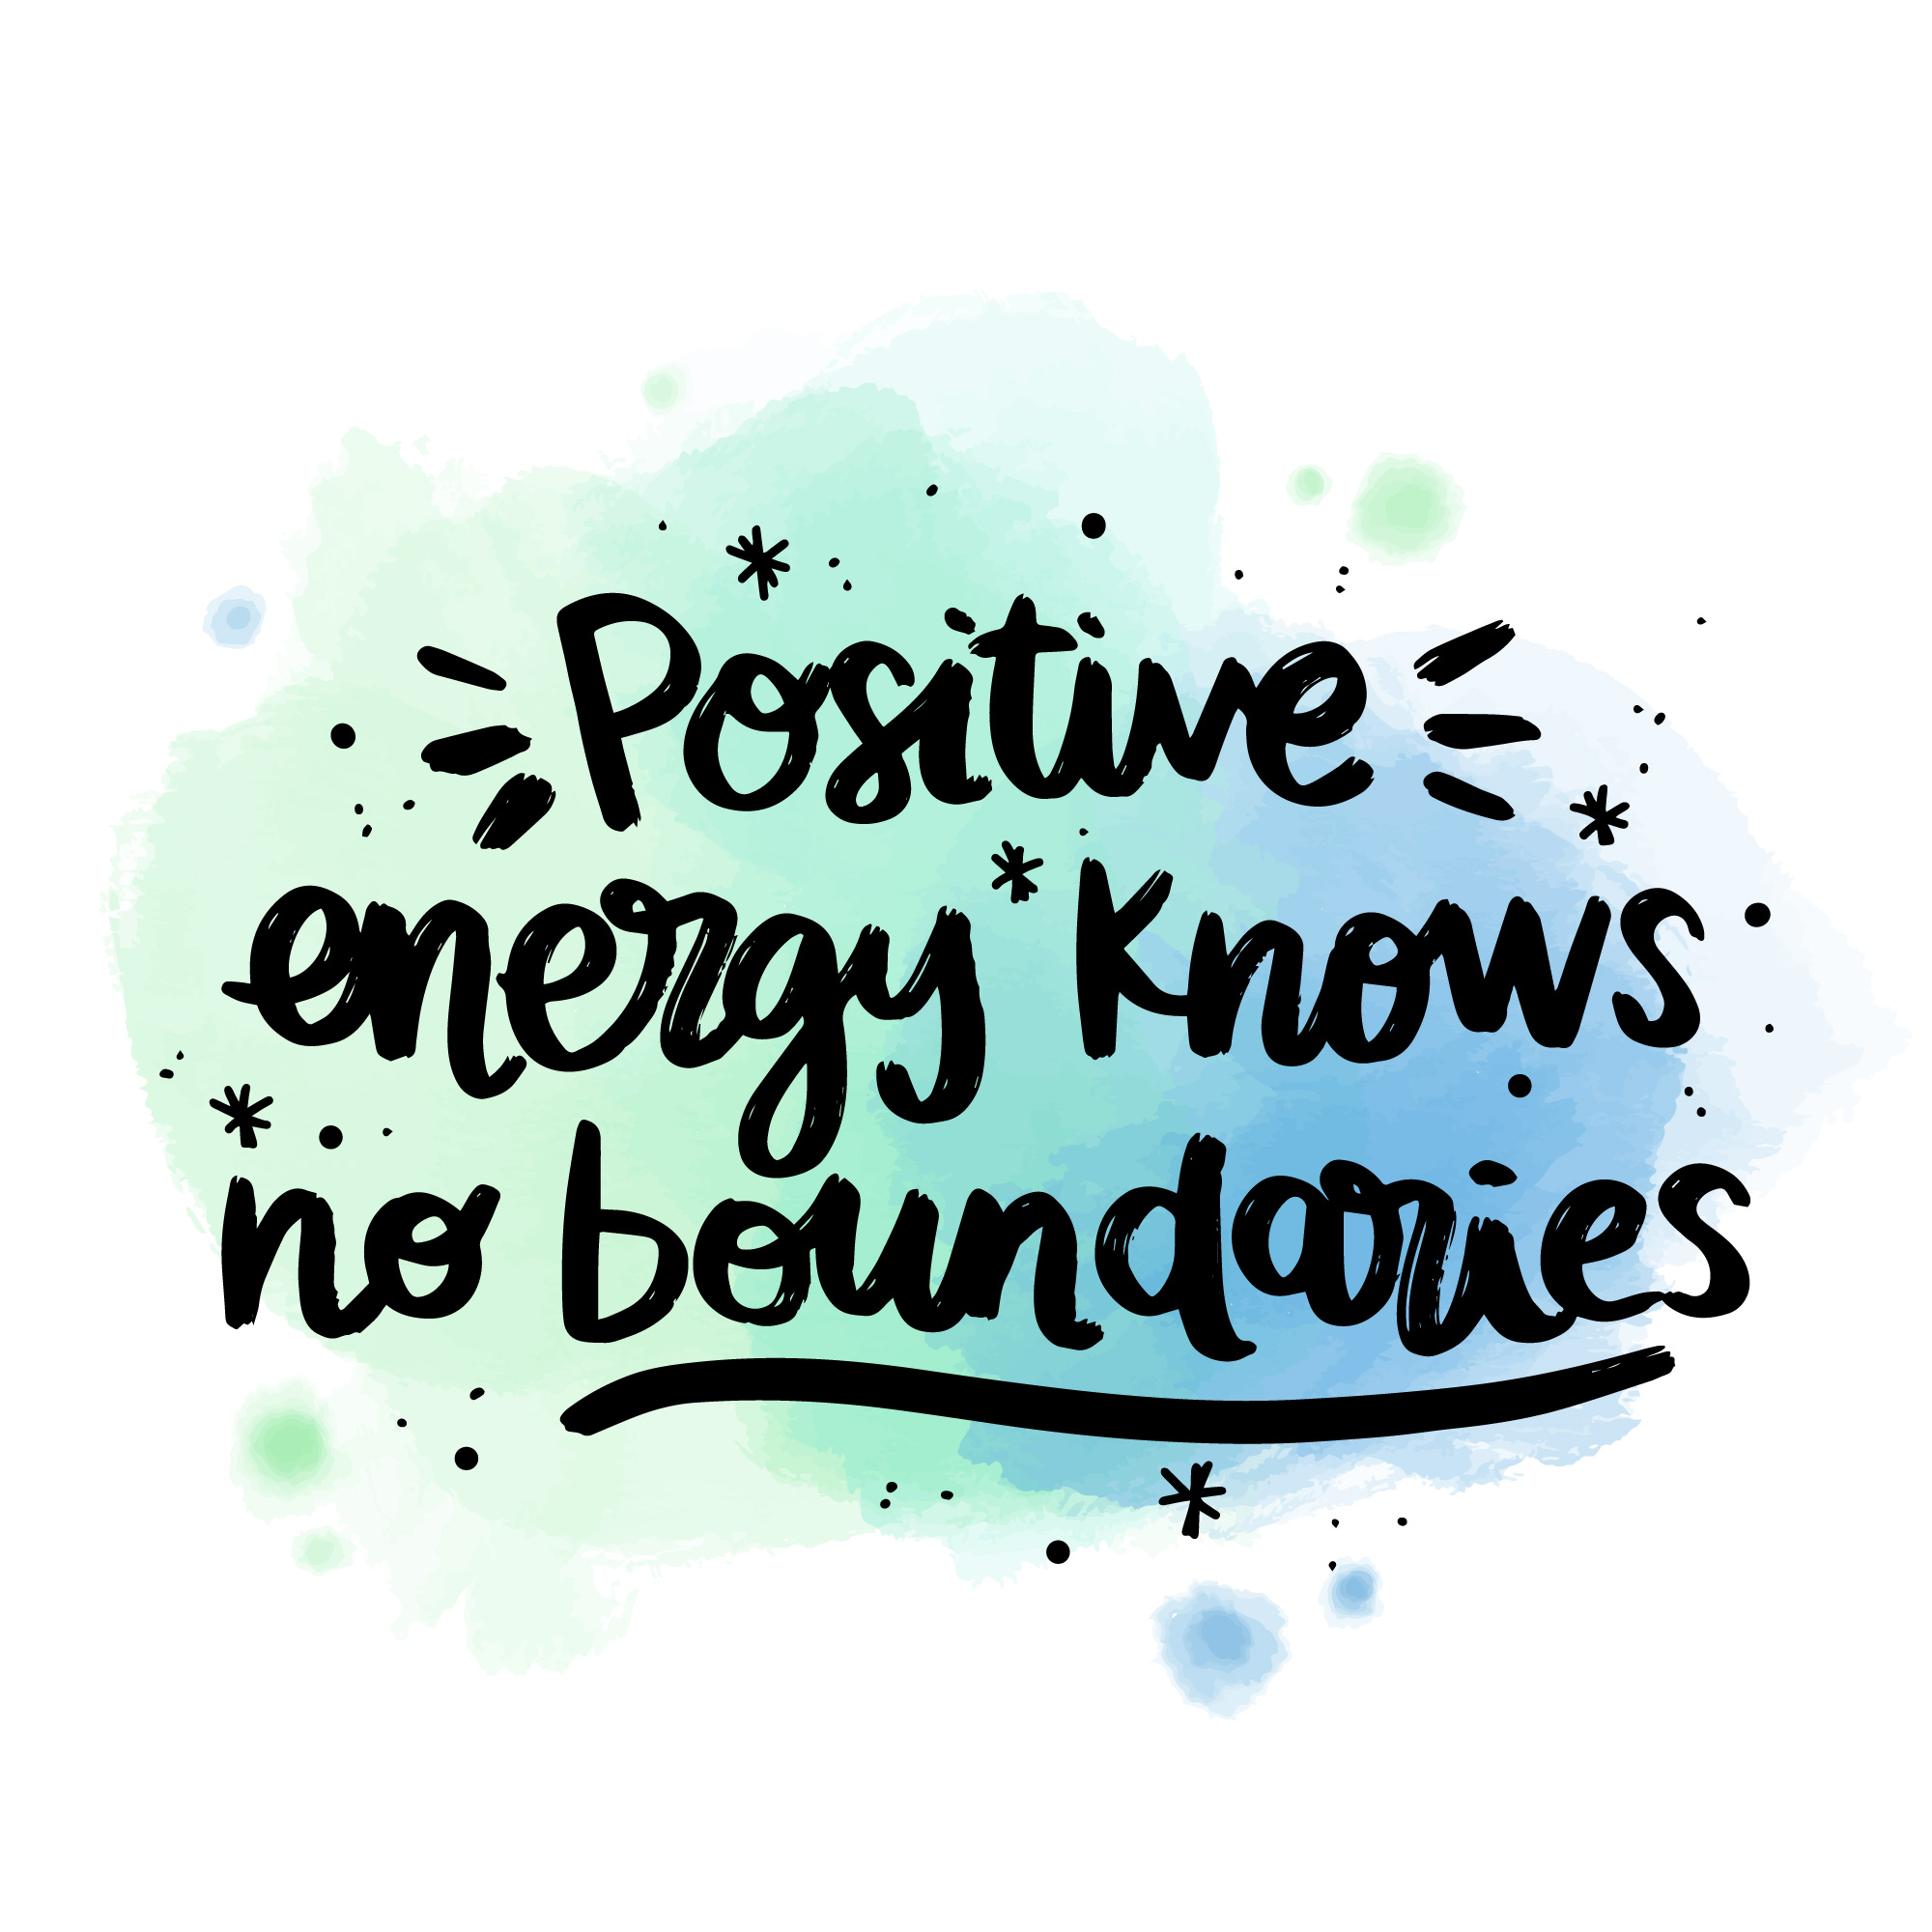 Positive
energy knows
no boundaries